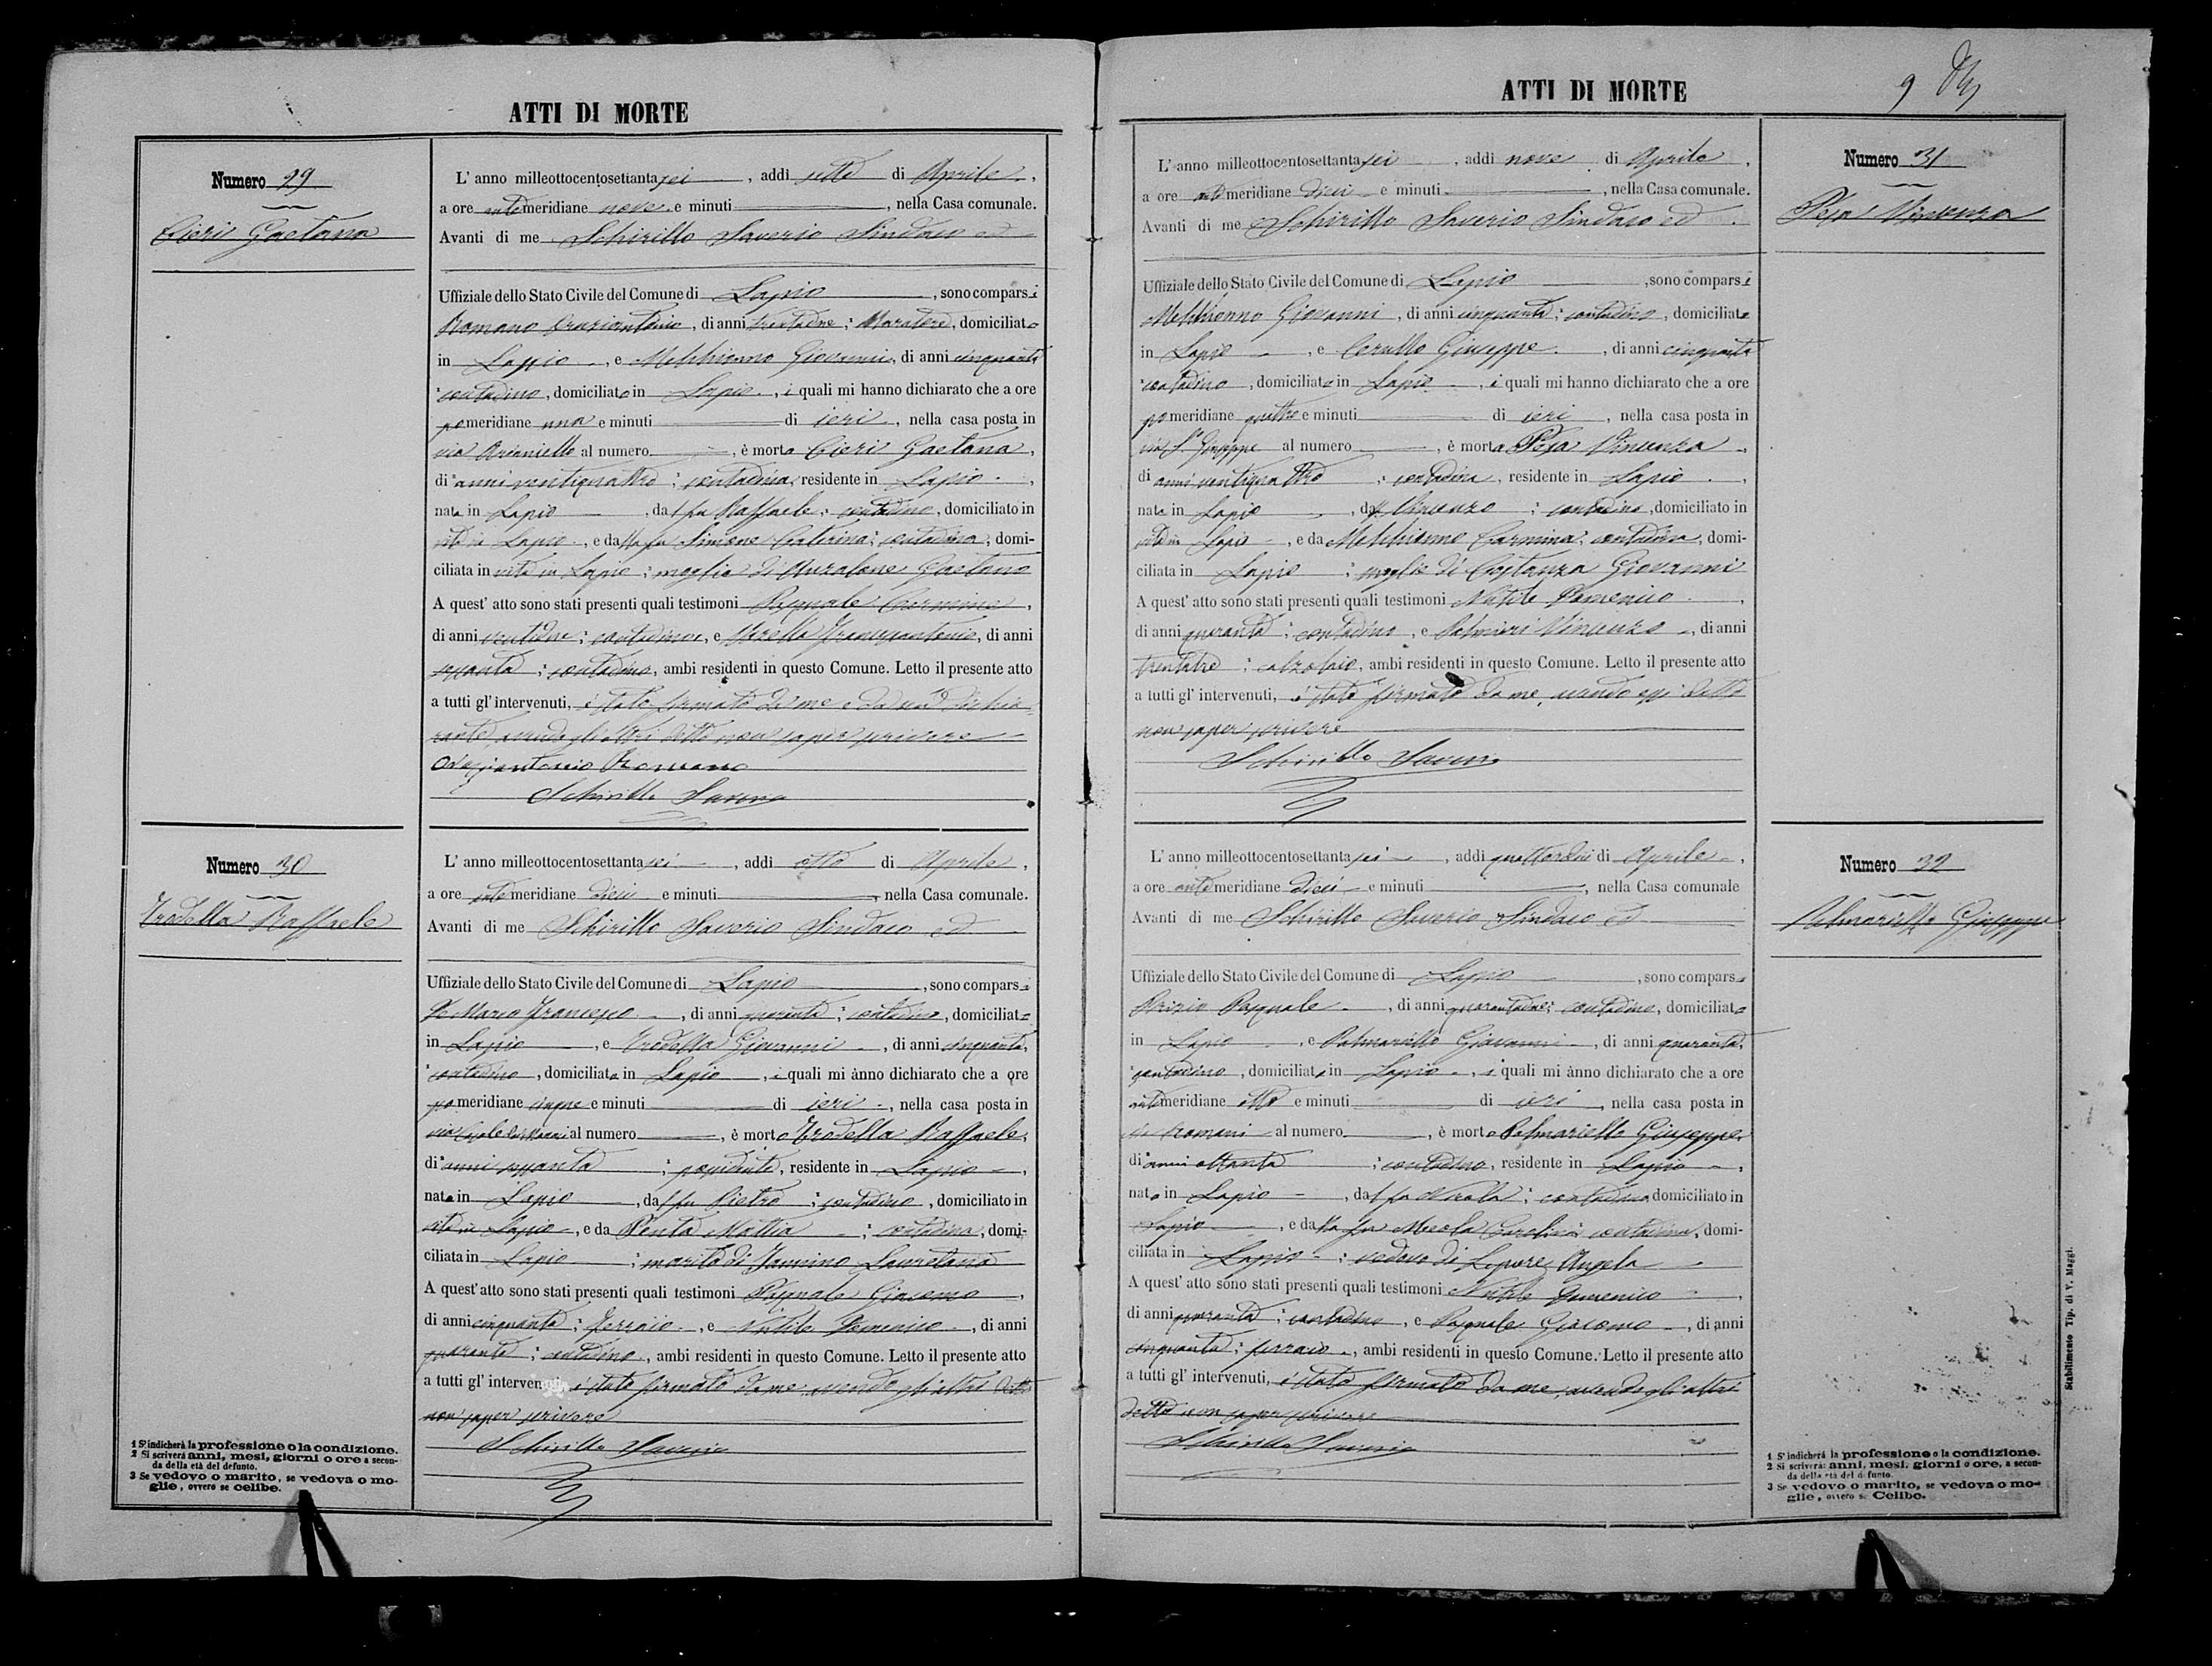 ATTI DI MORTE
Numero 29
Cieri Gaetana
L' anno milleottocentosettantasei, addì sette di Aprile,
a ore antimeridiane nove e minuti, nella Casa comunale.
Avanti di me Schirillo Saverio Sindaco ed
Uffiziale dello Stato Civile del Comune di Lapio, sono comparsi
Romano Oraziantonio, di anni trentadue; Muratore, domiciliato
in Lapio, e Melchionno Giovanni, di anni cinquanta
contadino, domiciliato in Lapio, i quali mi hanno dichiarato che a ore
pomeridiane una e minuti di ieri, nella casa posta in
via al numero, è morta Cieri Gaetana,
di anni ventiquattro; contadina, residente in Lapio,
nata in Lapio, dal fu Raffaele; contadino, domiciliato in
vita in Lapio, e dalla fu Simone Caterina; contadina, domi-
ciliata in vita in Lapio; moglie di Anzalone Gaetano
A quest' atto sono stati presenti quali testimoni Pasquale Carmine,
di anni; contadino, e Francescantonio, di anni
contadino, ambi residenti in questo Comune. Letto il presente atto
a tutti gl' intervenuti, è stato firmato da me e da un dichia-
rante, avendo gli altri detto non saper scrivere
Oraziantonio Romano
Schirillo Saverio
Numero 30
Trodella Raffaele
L' anno milleottocentosettantasei, addì otto di Aprile,
a ore antimeridiane dieci e minuti, nella Casa comunale.
Avanti di me Schirillo Saverio Sindaco ed
Uffiziale dello Stato Civile del Comune di Lapio, sono comparsi
De Marco Francesco, di anni quaranta; contadino, domiciliato
in Lapio, e Trodella Giovanni, di anni cinquanta,
contadino, domiciliato in Lapio, i quali mi ànno dichiarato che a ore
pomeridiane cinque e minuti di ieri, nella casa posta in
via al numero, è morto Trodella Raffaele,
di anni; possidente, residente in Lapio,
nato in Lapio, dal fu Pietro; contadino, domiciliato in
vita in Lapio, e da Penta Mattia; contadina, domi-
ciliata in Lapio; marito di Iannino Lauretana
A quest' atto sono stati presenti quali testimoni Pasquale Giacomo,
di anni cinquanta; Ferraio, e Nutile Domenico, di anni
quaranta; contadino, ambi residenti in questo Comune. Letto il presente atto
a tutti gl' intervenuti, è stato firmato da me avendo gli altri detto
non saper scrivere
Schirillo Saverio
1 S'indicherà la professione o la condizione.
2 Si scriverà anni, mesi, giorni o ore a secon-
da della età del defunto.
3 Se vedovo o marito, se vedova o mo-
glie, ovvero se celibe.
ATTI DI MORTE
9
Numero 31
Pesa Vincenza
L' anno milleottocentosettantasei, addì nove di Aprile,
a ore antimeridiane dieci e minuti, nella Casa comunale.
Avanti di me Schirillo Saverio Sindaco ed
Uffiziale dello Stato Civile del Comune di Lapio, sono comparsi
Melchionno Giovanni, di anni cinquanta; contadino, domiciliato
in Lapio, e Cerullo Giuseppe, di anni cinquanta
contadino, domiciliato in Lapio, i quali mi hanno dichiarato che a ore
pomeridiane quattro e minuti di ieri, nella casa posta in
via S. Giuseppe al numero, è morta Pesa Vincenza,
di anni ventiquattro; contadina, residente in Lapio,
nata in Lapio, da Vincenzo; contadino, domiciliato in
vita in Lapio, e da Melchionno Carmina; contadina, domi-
ciliata in Lapio; moglie di Costanza Giovanni
A quest' atto sono stati presenti quali testimoni Nutile Domenico,
di anni quaranta; contadino, e Palmieri Vincenzo, di anni
trentatre; calzolaio, ambi residenti in questo Comune. Letto il presente atto
a tutti gl' intervenuti, è stato firmato da me, avendo essi detto
non saper scrivere
Schirillo Saverio
Numero 32
Palmariello Giuseppe
L' anno milleottocentosettantasei, addì quattordici di Aprile,
a ore antimeridiane dieci e minuti, nella Casa comunale
Avanti di me Schirillo Saverio Sindaco ed
Uffiziale dello Stato Civile del Comune di Lapio, sono comparsi
Prizio Pasquale, di anni quarantadue; contadino, domiciliato
in Lapio, e Palmariello Giovanni, di anni quaranta,
contadino, domiciliato in Lapio, i quali mi ànno dichiarato che a ore
antimeridiane otto e minuti di ieri, nella casa posta in
via Romani al numero, è morto Palmariello Giuseppe,
di anni ottanta; contadino, residente in Lapio,
nato in Lapio, dal fu Nicola; contadino, domiciliato in
Lapio, e dalla fu Meola Carolina; contadina, domi-
ciliata in Lapio; vedovo di Lepore Angela
A quest' atto sono stati presenti quali testimoni Nutile Domenico,
di anni quaranta; contadino, e Pasquale Giacomo, di anni
cinquanta; ferraio, ambi residenti in questo Comune. Letto il presente atto
a tutti gl' intervenuti, è stato firmato da me, avendo gli altri
detto non saper scrivere
Schirillo Saverio
1 S'indicherà la professione o la condizione.
2 Si scriverà: anni, mesi, giorni o ore, a secon-
da della età del defunto.
3 Se vedovo o marito, se vedova o mo-
glie, ovvero se Celibe.
Stabilimento Tip. di V. Maggi.